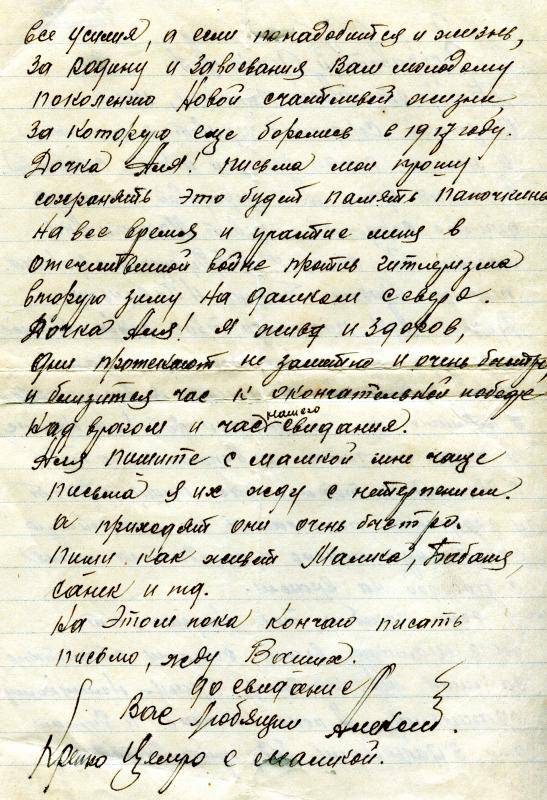 все усилия, а если понадобится и жизнь,
За Родину и завоевания Вам молодому
поколению новой счастливой жизни,
за которую еще боролись в 1917 году.
Дочка Аля! письма мои прошу
сохранять это будет память папочкины
на все время и участие меня в
отечественной войне против гитлеризма
вторую зиму на далеком севере.
Дочка Аля! Я жив и здоров,
Дни протекают не заметно и очень быстро
и близится час к окончательной победе
над врагом и час нашего свидания.
Аля пишите с мамкой мне чаще
письма я их жду с нетерпением.
а приходят они очень быстро.
пиши как живет Мамка, Бабаня,
Санек и тд.
на этом пока кончаю писать
письмо, жду Ваших.
до свидание
Вас Любящий Алексей.
Крепко Целую с мамкой.